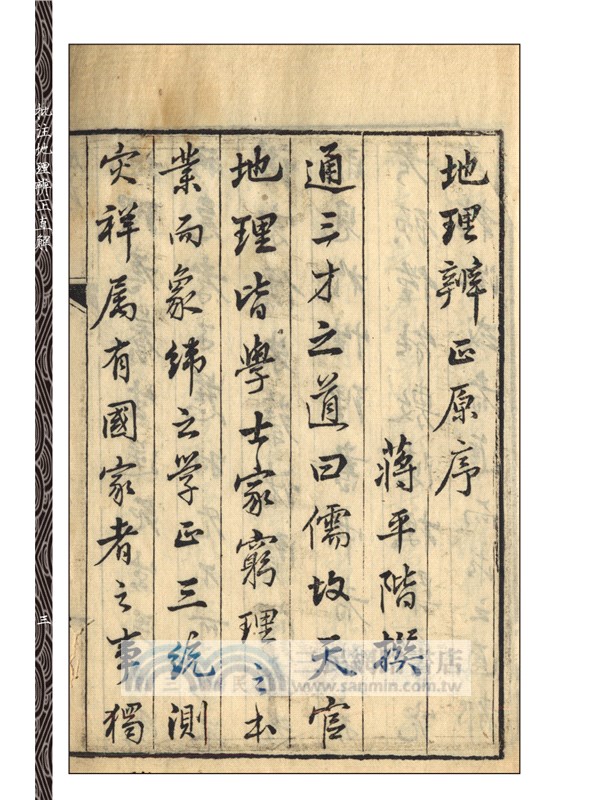 地理辨正原序
蔣平階撰
通三才之道曰儒故天官
地理皆學士家窮理之本
業而象緯之学正三統測
灾祥属有國家者之事獨
批注地理辨正直解
三
三民網路書店
三民
www.sanmin.com.tw